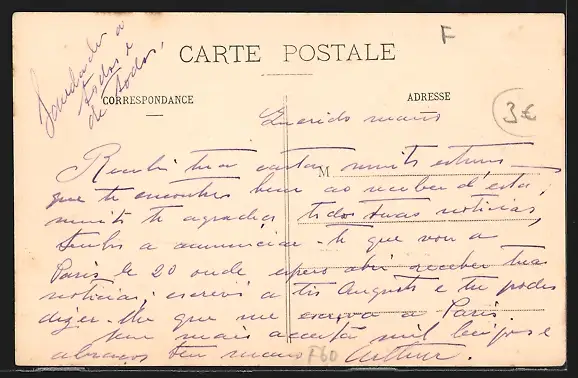 Saudades a
todos e
de todos,
F
CARTE POSTALE
CORRESPONDANCE
ADRESSE
3€
Querido mano
M
Recebi tua carta, muito estimo
que te encontres bem ao receber d'esta,
muito te agradeço todas tuas noticias,
tenho a annunciar-te que vou a
Paris le 20 onde espero abi receber tuas
noticias; escrevi a tio Augusto e tu podes
dizer-lhe que me escriva a Paris.
Sem mais aceita mil beijos e
abraços teu mano Arthur.
F60